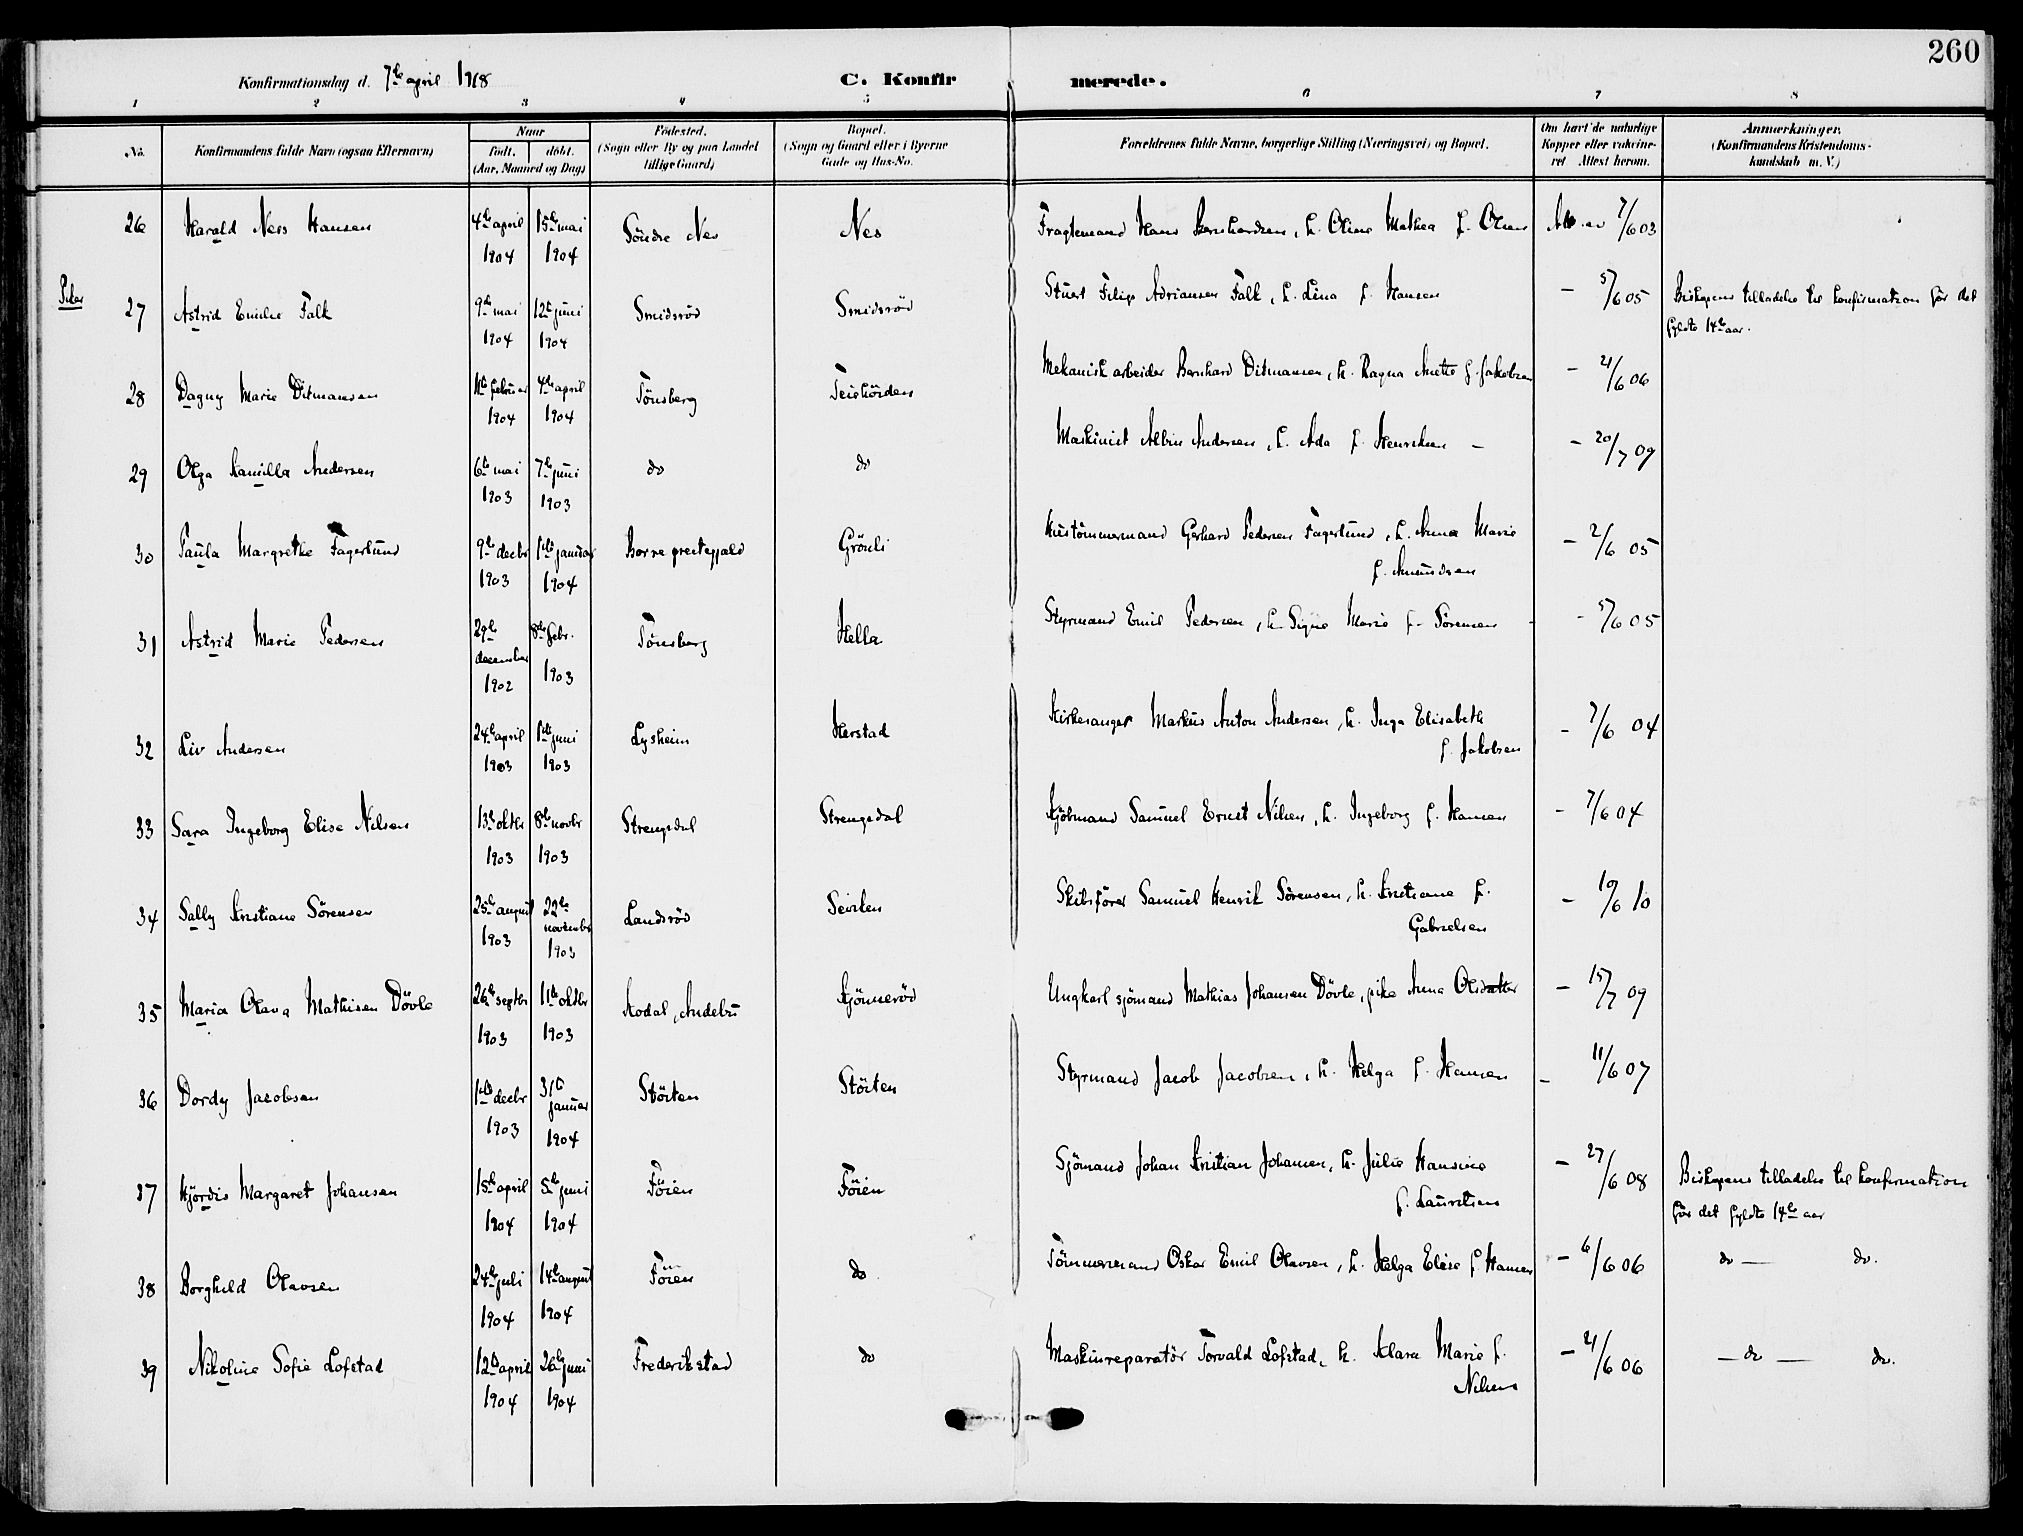 260
Konfirmationsdag d. 7de april 1918
C. Konfirmerede.
1 2 3 4 5 6 7 8
No. Konfirmandens fulde Navn (ogsaa Efternavn) Naar født, døbt. (Aar, Maaned og Dag) Fødested. (Sogn eller By og paa Landet tillige Gaard) Bopæl. (Sogn og Gaard eller i Byerne Gade og Hus-No. Forældrenes fulde Navne, borgerlige Stilling (Næringsvei) og Bopæl. Om havt de naturlige Kopper eller vaksineret Attest herom. Anmærkninger. (Konfirmandens Kristendomskundskab m. V.)
26 Harald Nes Hansen 4de april 1904 15de mai 1904 Söndre Nes Nes Fragtemand Hans Bernhardsen, h. Oline Mathea f. Olsen 7/6 03
Piker
27 Astrid Emilie Falk 9de mai 1904 12te juni 1904 Smidsröd Smidsröd Stuert Filip Adriansen Falk, h. Lina f. Hansen – 5/6 05 Biskopens tilladelse til konfirmation för det fyldte 14de aar.
28 Dagny Marie Ditmansen 11te februar 1904 4de april 1904 Tönsberg Teishörden Mekanisk arbeider Bernhard Ditmansen, h. Ragna Anette f. Jakobsen – 21/6 06
29 Olga Kamilla Andersen 6te mai 1903 7de juni 1903 do do Maskinist Albin Andersen, h. Ada f. Henriksen – – 20/7 09
30 Paula Margrethe Fagerlund 9de decbr 1903 1ste januar 1904 Borre prestegjæld Grönli Hustömmermand Gerhard Pedersen Fagerlund, h. Anna Marie f. Amundsen – 2/6 05
31 Astrid Marie Pedersen 29de december 1902 8de febr. 1903 Tönsberg Hella Styrmand Emil Pedersen, h. Signe Marie f. Sörensen – – 5/6 05
32 Liv Andersen 24de april 1903 1ste juni 1903 Lysheim Herstad Kirkesanger Markus Anton Andersen, h. Inga Elisabeth f. Jakobsen – 7/6 04
33 Sara Ingeborg Elise Nilsen 13de oktbr 1903 8de novbr 1903 Strengsdal Strengsdal Kjöbmand Samuel Ernst Nilsen, h. Ingeborg f. Hansen – 7/6 04
34 Sally Kristiane Sörensen 25de august 1903 22de november 1903 Landsröd Seirken Skibsförer Samuel Henrik Sörensen, h. Kristiane f. Gabrielsen – 19/6 10
35 Maria Olava Mathisen Dövle 26de septbr 1903 11te oktbr 1903 Kodal, Andebu Kjönneröd Ungkarl sjömand Mathias Johansen Dövle, pike Anna Olsdatter – 15/7 09
36 Dordy Jacobsen 1ste decbr 1903 31te januar 1904 Störten Störten Styrmand Jacob Jacobsen, h. Helga f. Hansen – 11/6 07
37 Hjördis Margaret Johansen 15de april 1904 5te juni 1904 Föien Föien Sjömand Johan Kristian Johansen, h. Julie Hansine f. Lauritsen – 27/6 08 Biskopens tilladelse til konfirmation för det fyldte 14de aar
38 Borghild Olavsen 24de juli 1904 14de august 1904 Föien do Tömmermand Oskar Emil Olavsen, h. Helga Elise f. Hansen – 6/6 06 do — do.
39 Nikoline Sofie Lofstad 12te april 1904 26de juni 1904 Frederikstad do Maskinreparatör Torvald Lofstad, h. Klara Marie f. Nilsen – 21/6 06 – do — do.